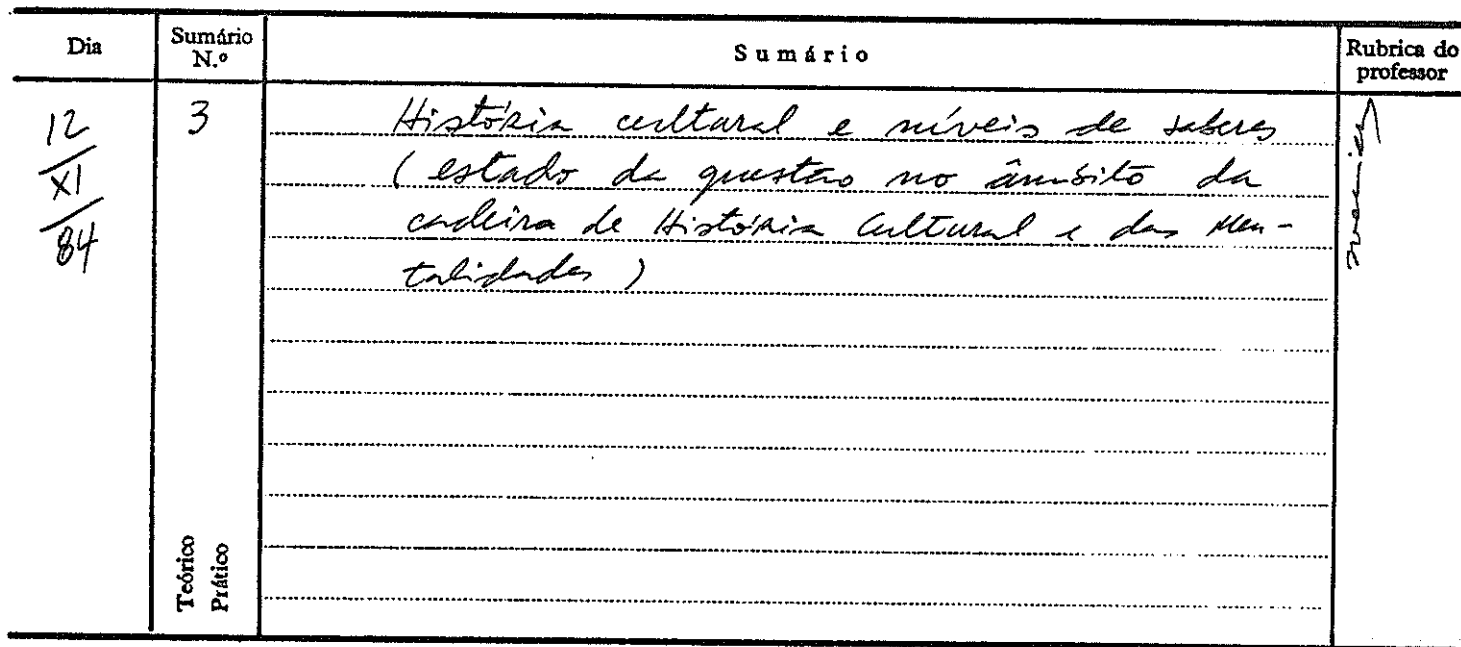 Dia
Sumário
N.º
Sumário
Rubrica do
professor
12
XI
84
3
História cultural e níveis de saberes
(estado da questão no âmbito da
cadeira de História Cultural e das Men-
talidades)
Teórico
Prático